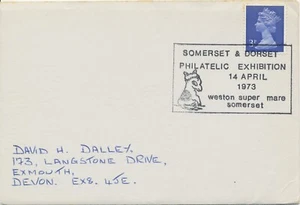 SOMERSET & DORSET
PHILATELIC EXHIBITION
14 APRIL
1973
weston super mare
somerset
DAVID H. DALLEY.
173, LANGSTONE DRIVE,
EXMOUTH,
DEVON. EX8. 4JE.